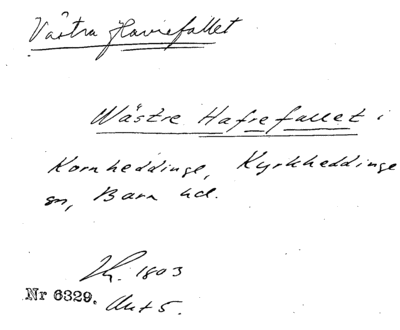 Västra Havrefallet
Wästre Hafrefallet i
Kornheddinge, Kyrkheddinge
sn, Bara hd.
1803
Nr 6329. Akt 5.